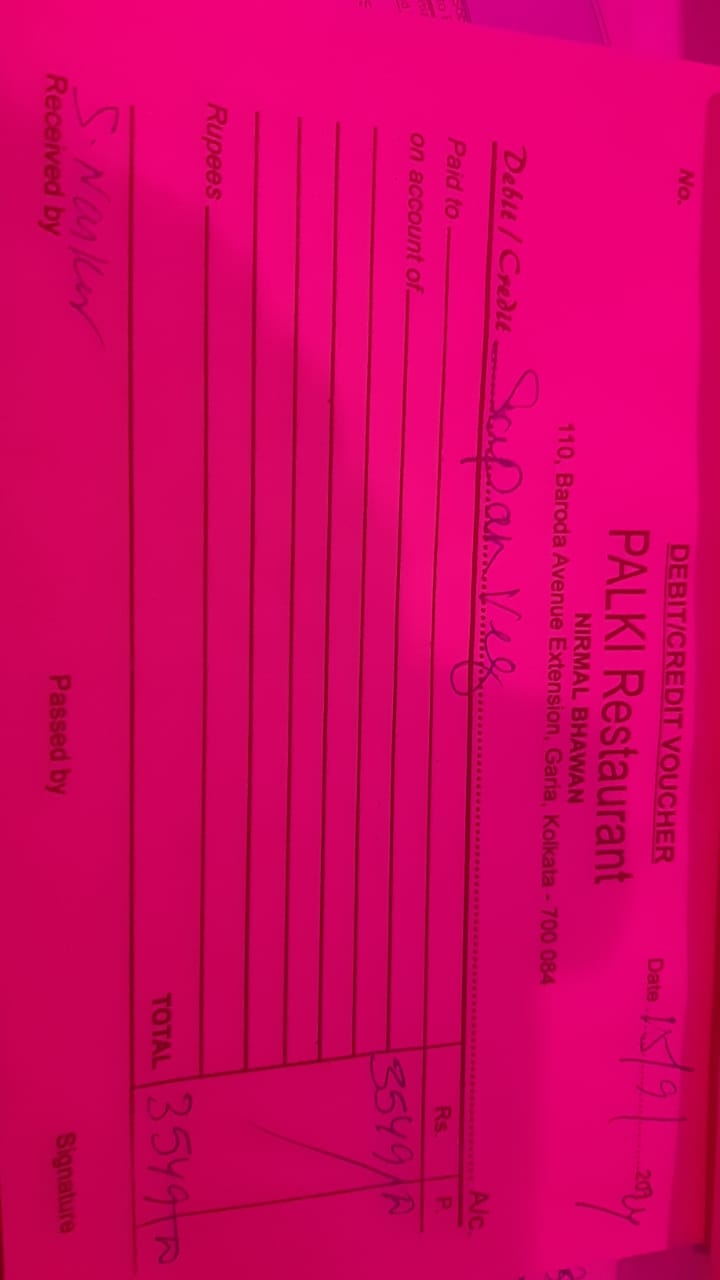 DEBIT/CREDIT VOUCHER
No.
PALKI Restaurant
Date 15/9/2024
NIRMAL BHAWAN
110, Baroda Avenue Extension, Garia, Kolkata - 700 084
Debit / Credit Veg A/c.
Paid to Rs. P.
on account of
3549/-
Rupees
TOTAL 3549/-
S. Naskar
Received by Passed by Signature